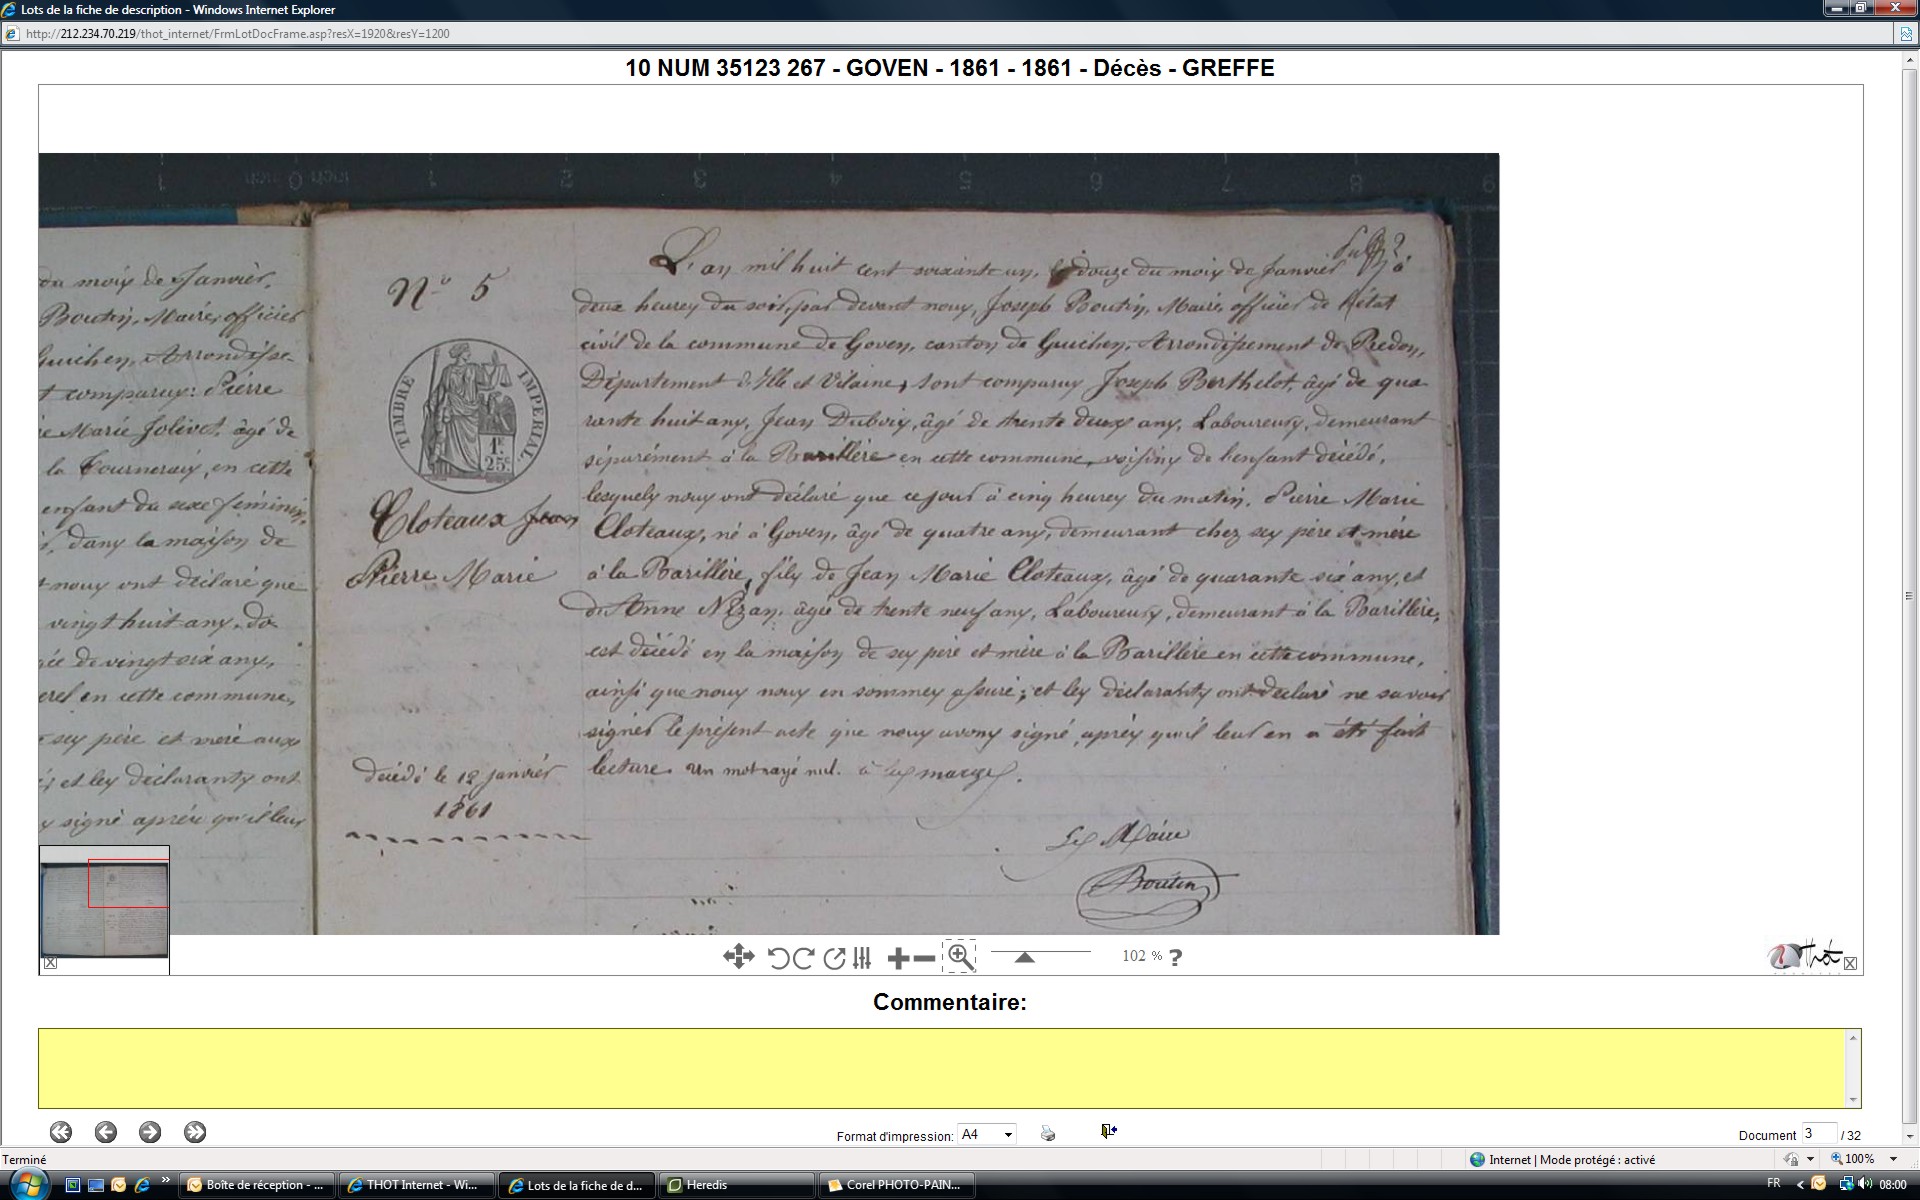 Lots de la fiche de description - Windows Internet Explorer
http://212.234.70.219/thot_internet/FrmLotDocFrame.asp?resX=1920&resY=1200
10 NUM 35123 267 - GOVEN - 1861 - 1861 - Décès - GREFFE
inch 0 1 2 3 4 5 6 7 8 9
du mois de Janvier,
Boutin, Maire, officier
Guichen, Arrondisse-
t comparus: Pierre
e Marie Jolivet, âgé de
la Tourneraix, en cette
enfant du sexe féminin,
dans la maison de
t nous ont déclaré que
vingt huit ans, do
ée de vingt six ans,
erel en cette commune,
ses père et mère aux
et les déclarants ont
signé après qu'il leur
N° 5
TIMBRE IMPERIAL
1F
25c
Cloteaux Jean
Pierre Marie
décédé le 12 Janvier
1861
L'an mil huit cent soixante un, le douze du mois de Janvier à
deux heures du soir, par devant nous, Joseph Boutin, Maire, officier de l'état
civil de la commune de Goven, canton de Guichen, Arrondissement de Redon,
Département d'Ille et Vilaine, sont comparus Joseph Berthelot, âgé de qua
rante huit ans, Jean Dubois, âgé de trente deux ans, Laboureurs, demeurant
séparément à la Barillère en cette commune, voisins de l'enfant décédé,
lesquels nous ont déclaré que ce jour à cinq heures du matin, Pierre Marie
Cloteaux, né à Goven, âgé de quatre ans, demeurant chez ses père et mère
à la Barillère, fils de Jean Marie Cloteaux, âgé de quarante six ans, et
de Anne Nizan, âgée de trente neuf ans, Laboureurs, demeurant à la Barillère,
est décédé en la maison de ses père et mère à la Barillère en cette commune,
ainsi que nous nous en sommes assuré; et les déclarants ont déclaré ne savoir
signer le présent acte que nous avons signé, après qu'il leur en a été fait
lecture. Un mot rayé nul. à la marge.
Le Maire
Boutin
102 % ?
Thot
Commentaire:
Format d'impression: A4
Document 3 / 32
Terminé
Internet | Mode protégé : activé
100%
Boîte de réception - ...
THOT Internet - Wi...
Lots de la fiche de d...
Heredis
Corel PHOTO-PAIN...
FR
08:00